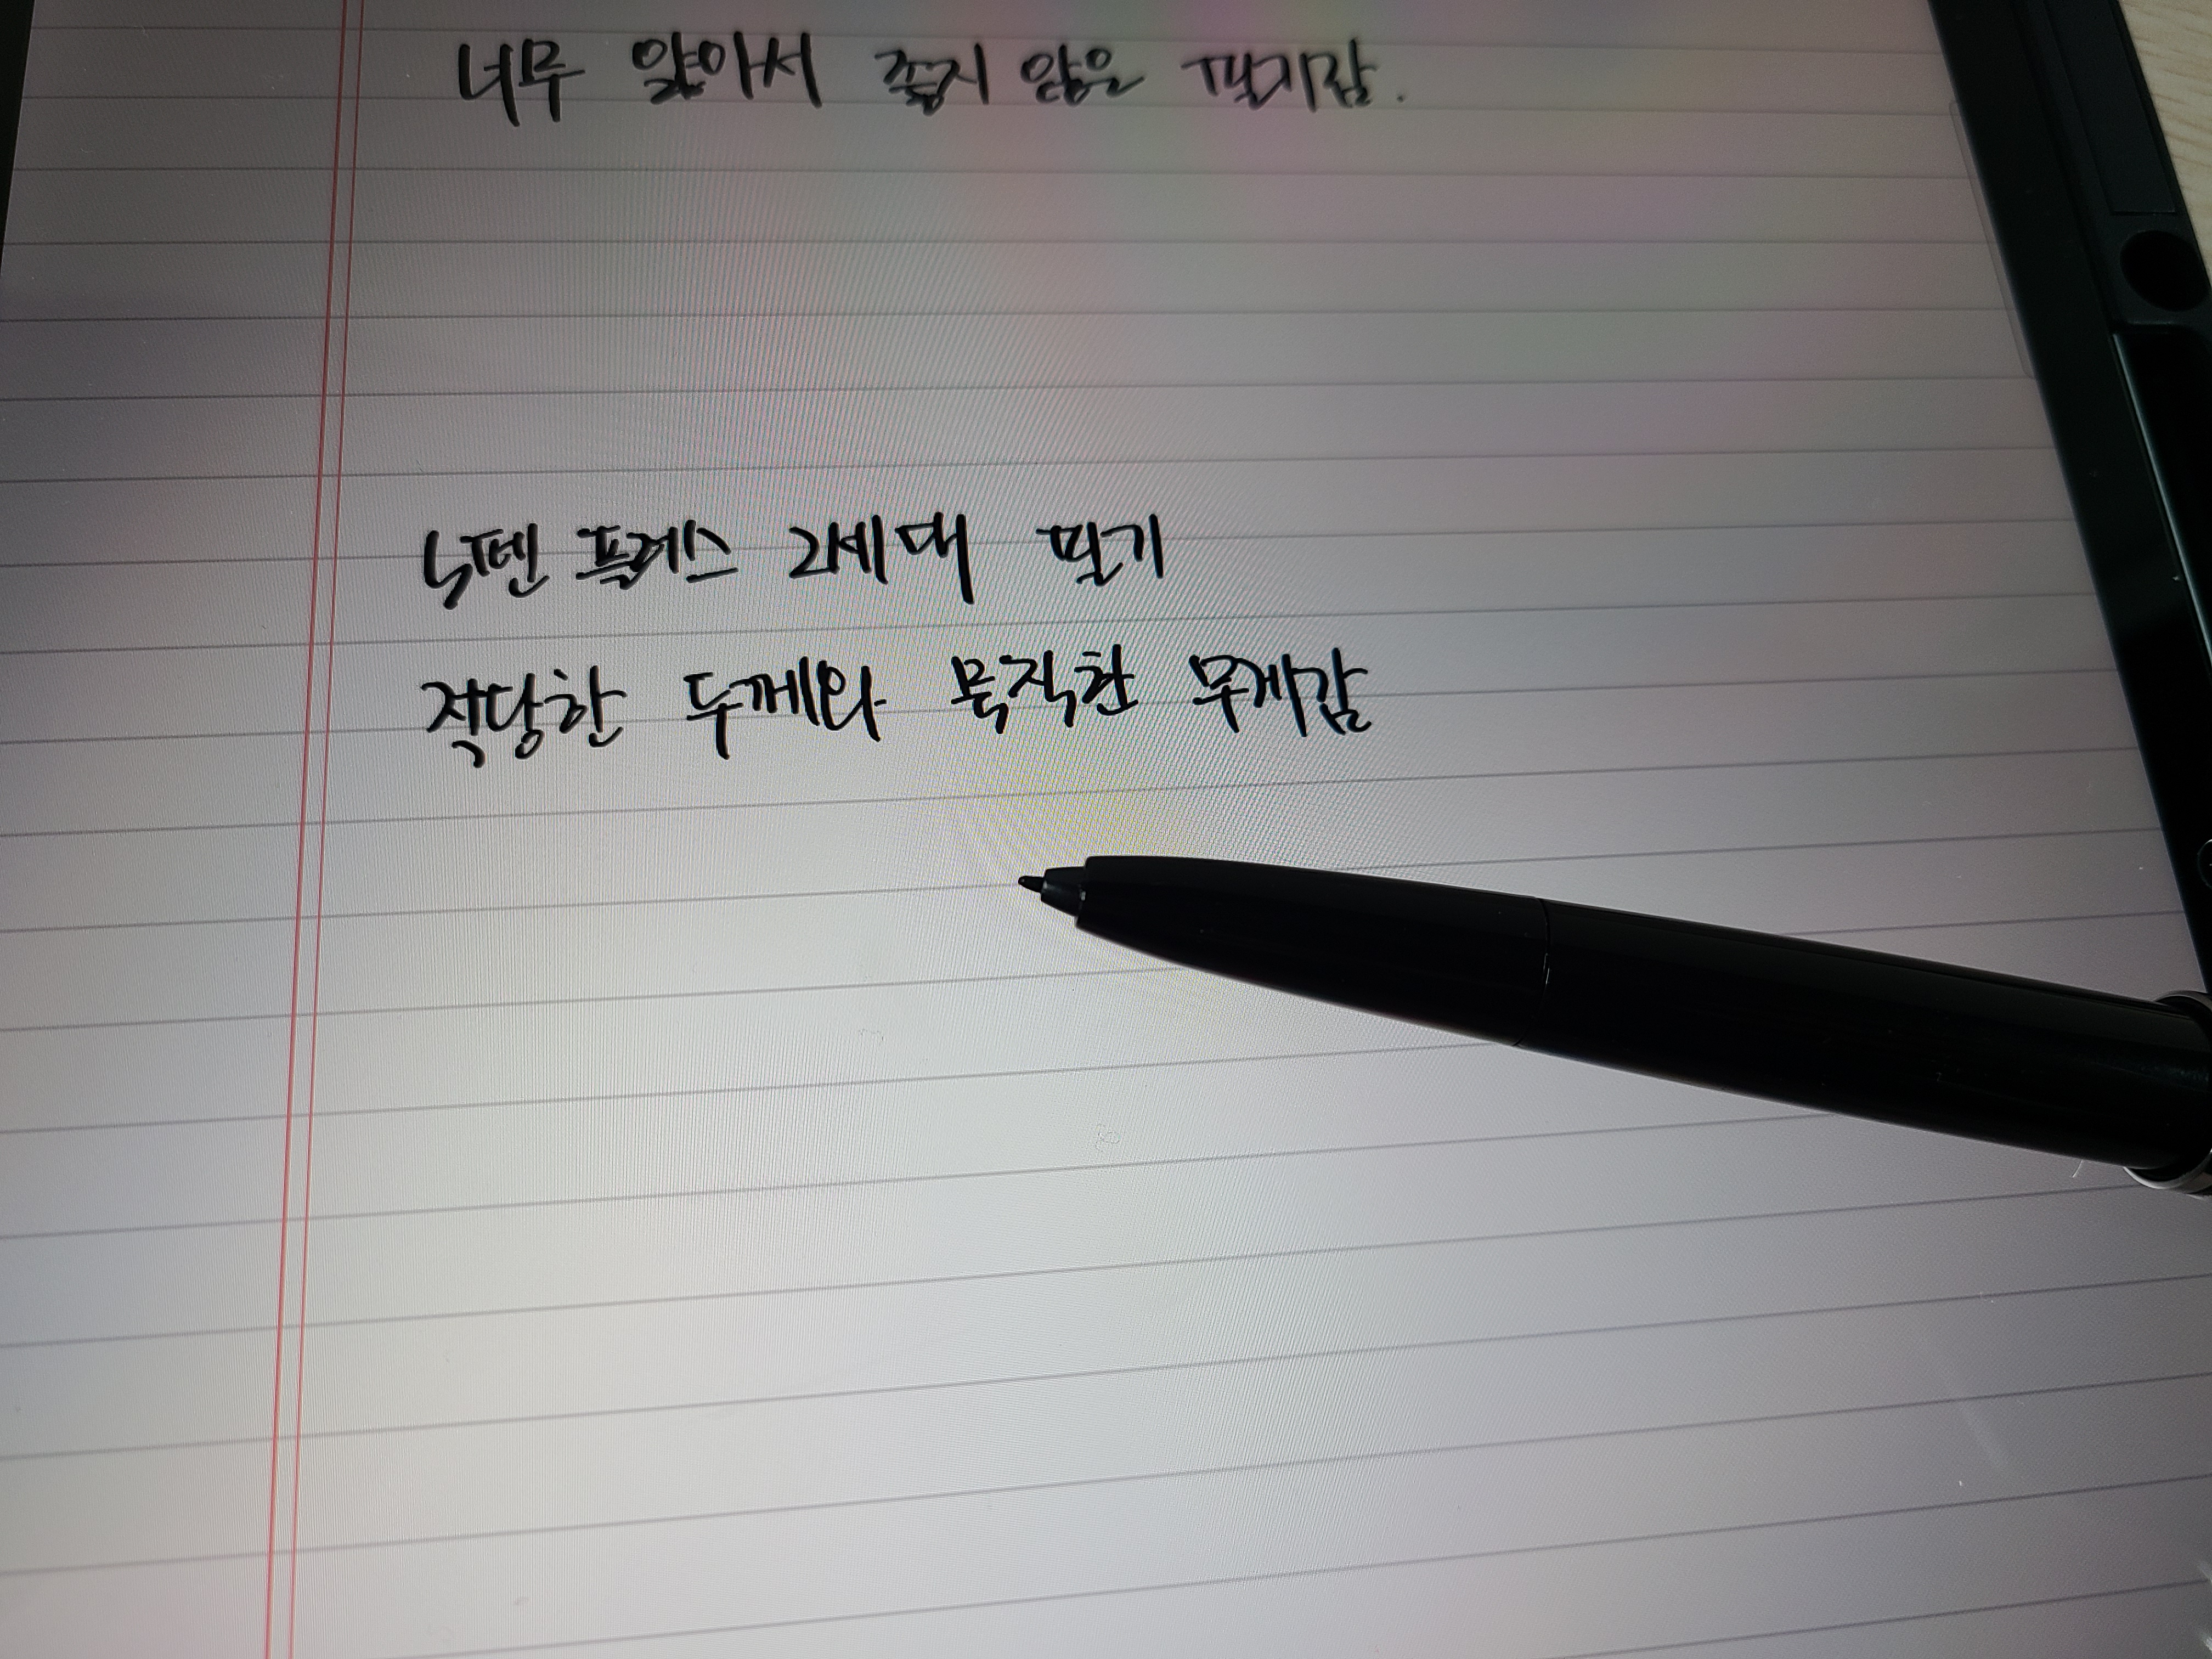 너무 얇아서 좋지 않은 필기감.
S펜 플레스 2세대 필기
적당한 두께와 묵직한 무게감